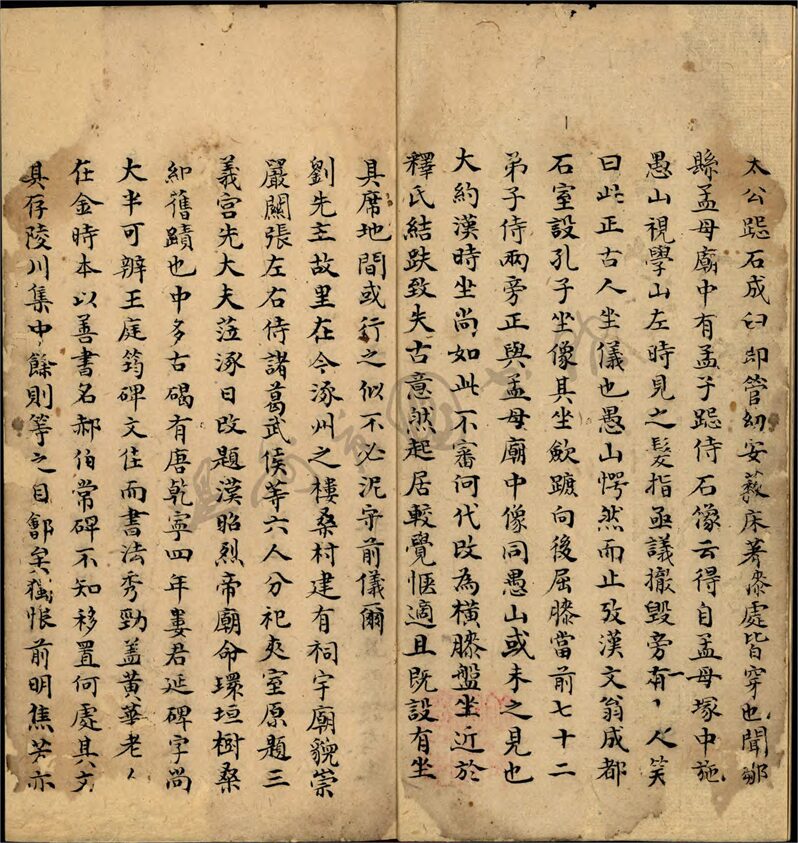 太公跽石成臼即管幼安藜床著膝處皆穿也聞鄒
縣孟母廟中有孟子跽侍石像云得自孟母塚中施
愚山視學山左時見之髮指亟議撤毀旁有一人笑
曰此正古人坐儀也愚山愕然而止攷漢文翁成都
石室設孔子坐像其坐歛蹠向後屈膝當前七十二
弟子侍兩旁正與孟母廟中像同愚山或未之見也
大約漢時坐尚如此不審何代改為橫膝盤坐近於
釋氏結趺致失古意然起居較覺愜適且既設有坐
具席地間或行之似不必泥守前儀爾
劉先主故里在今涿州之樓桑村建有祠宇廟貌崇
嚴關張左右侍諸葛武侯等六人分祀夾室原題三
義宮先大夫蒞涿日改題漢昭烈帝廟命環垣樹桑
紀舊蹟也中多古碣有唐乾寧四年婁君延碑字尚
大半可辨王庭筠碑文佳而書法秀勁蓋黃華老人
在金時本以善書名郝伯常碑不知移置何處其文
具存陵川集中餘則等之自鄶矣獨恨前明焦芳亦